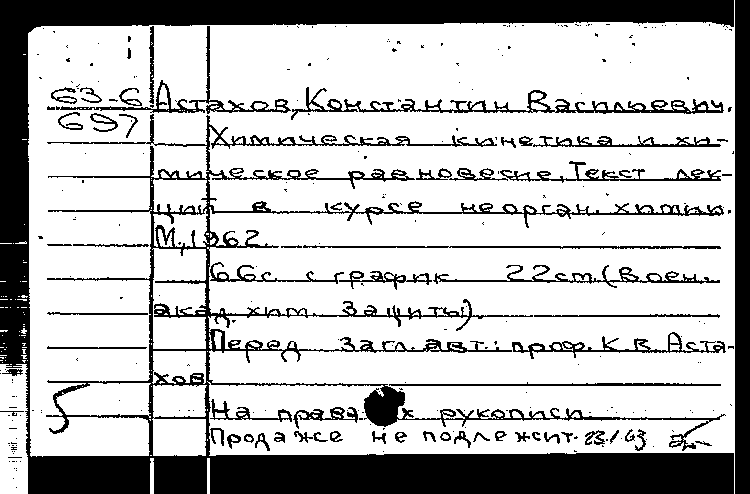 63-6 Астахов, Константин Васильевич.
697 Химическая кинетика и хи-
мическое равновесие. Текст лек-
ций в курсе неорган. химии.
М., 1962.
66с. с график. 22см. (Воен.
акад. хим. защиты).
Перед загл. авт.: проф. К.В. Аста-
хов
5 На правах рукописи
Продаже не подлежит. 23/63